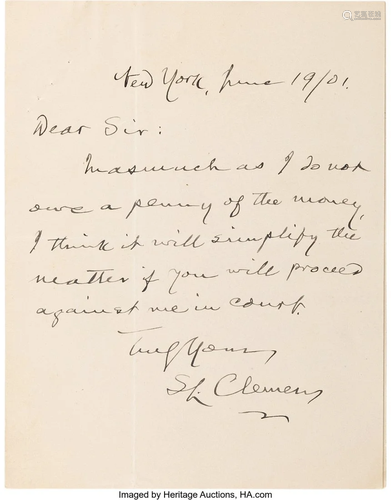 New York, June 19/01.
Dear Sir:
Inasmuch as I do not
owe a penny of the money,
I think it will simplify the
matter if you will proceed
against me in court.
Truly Yours
SL Clemens
Imaged by Heritage Auctions, HA.com